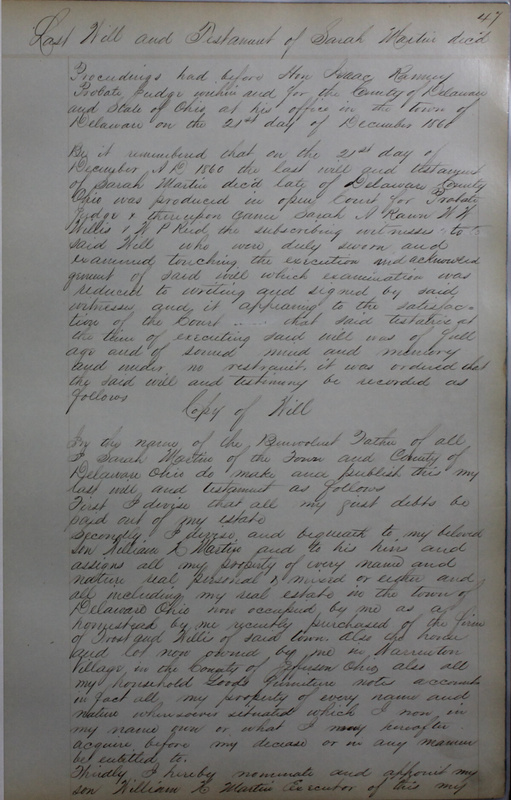 47
Last Will and Testament of Sarah Martin dec'd
Proceedings had before Hon Isaac Ranney
Probate Judge within and for the County of Delaware
and State of Ohio, at his office in the town of
Delaware on the 21st day of December 1860
Be it remembered that on the 21st day of
December A D 1860 the last will and testament
of Sarah Martin dec'd late of Delaware County
Ohio was produced in open Court for Probate
Judge & thereupon came Sarah A W W
Willis & W P Reid the subscribing witnesses to
said Will who were duly sworn and
examined touching the execution and acknowled
gment of said will which examination was
reduced to writing and signed by said
witnesses and it appearing to the satisfac-
tion of the Court that said testatrix at
the time of executing said will was of full
age and of sound mind and memory
and under no restraint. it was ordered that
the said will and testimony be recorded as
follows
Copy of Will
In the name of the Benevolent Father of all
I Sarah Martin of the Town and County of
Delaware Ohio do make and publish this my
last will and testament as follows
First I devise that all my just debts be
paid out of my estate
Secondly I devise and bequeath to my beloved
son William K Martin and to his heirs and
assigns all my property of every name and
nature real, personal & mixed or either and
all including my real estate in the town of
Delaware Ohio now occupied by me as a
homestead by me recently purchased of the firm
of and Willis of said town. Also the house
and lot now owned by me in Warrenton
Village in the County of Jefferson Ohio, also all
my household Goods Furniture notes accounts
in fact all my property of every name and
nature wheresoever situated which I now in
my name own or what I may hereafter
acquire before my decease or in any manner
be entitled to.
Thirdly I hereby nominate and appoint my
son William K Martin Executor of this my